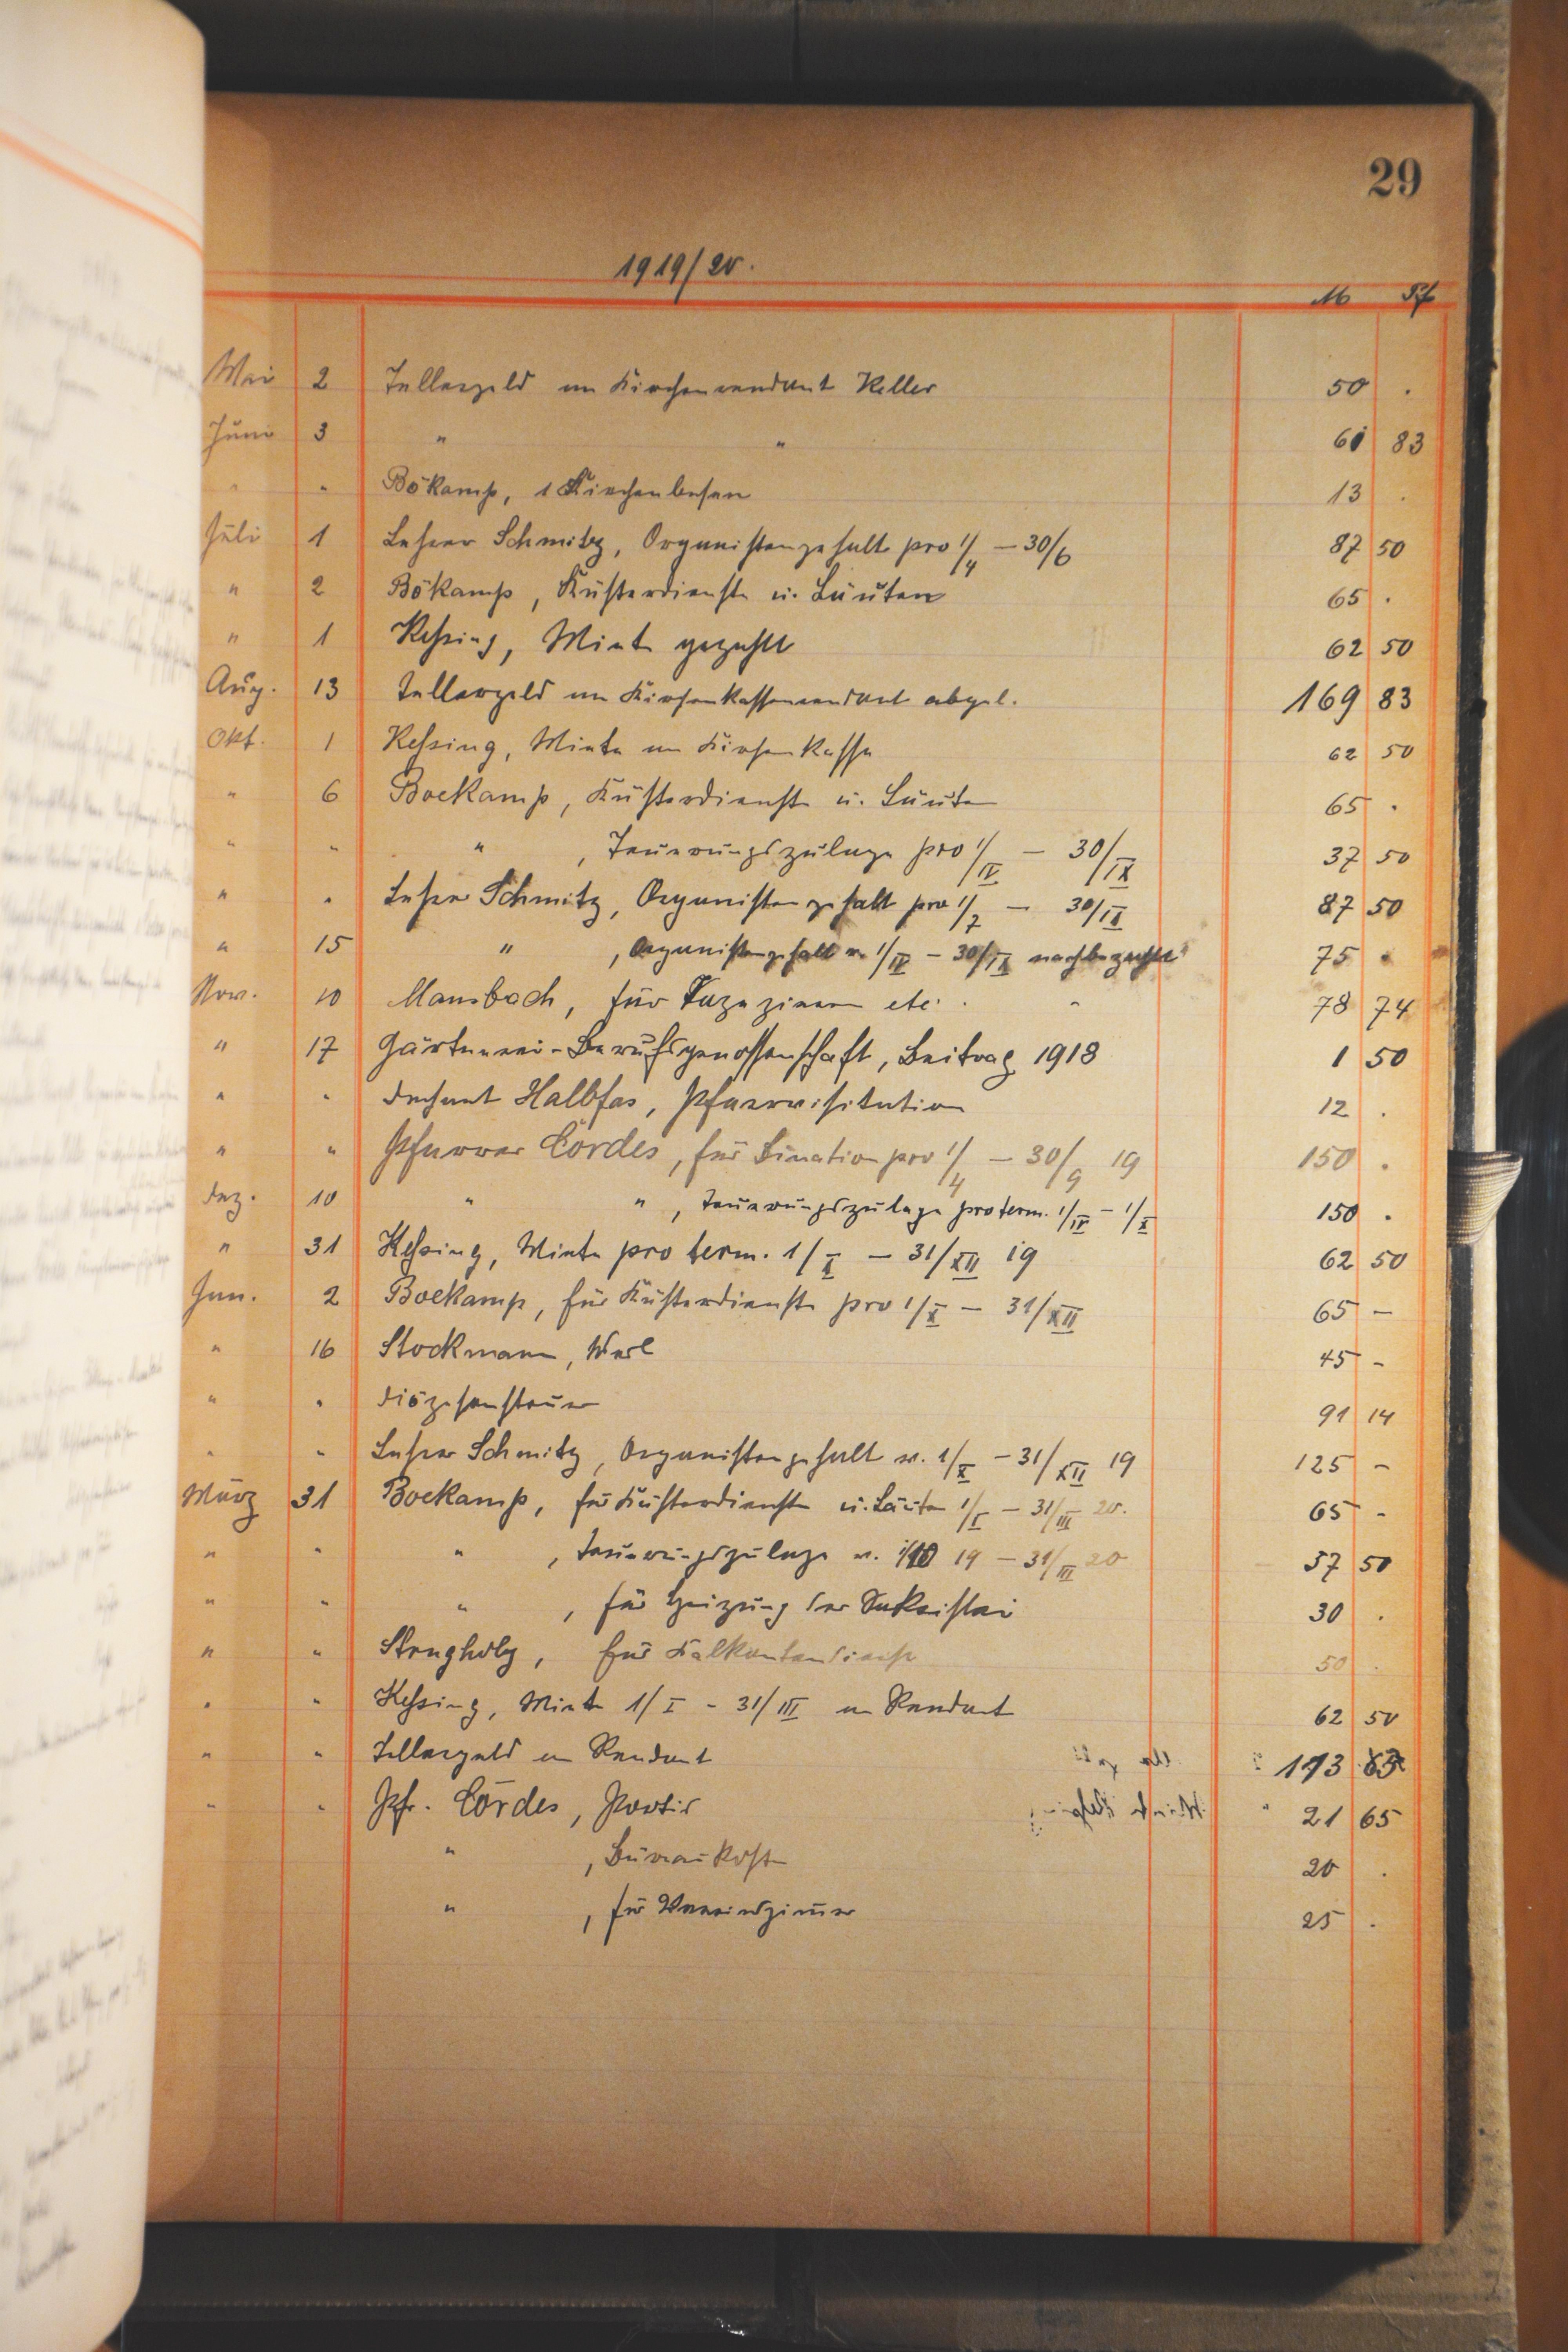 29
1919/20.
M Pf
Mai 2 Tellergeld an Kirchenrendant Keller 50 .
Juni 3 " " 61 83
" " Bökamp, 1 Kirchenbesen 13 .
Juli 1 Lehrer Schmitz, Organistengehalt pro 1/4 – 30/6 87 50
" 2 Bökamp, Küsterdienste u. Läuten 65 .
" 1 Kessing, Miete gezahlt 62 50
Aug. 13 Tellergeld an Kirchenkassenrendant abgel. 169 83
Okt. 1 Kessing, Miete an Kirchenkasse 62 50
" 6 Boekamp, Küsterdienste u. Läuten 65 .
" " " , Teuerungszulage pro 1/IV – 30/IX 37 50
" " Lehrer Schmitz, Organistengehalt pro 1/7 – 30/IX 87 50
" 15 " , Organistengehalt v. 1/IV – 30/IX nachbezahlt 75 .
Nov. 10 Mansbach, für 78 74
" 17 Gärtnerei-Berufsgenossenschaft, Beitrag 1918 1 50
" " Dechant Halbfas, Pfarrvisitation 12 .
" " Pfarrer Cordes, für Bination pro 1/4 – 30/9 19 150 .
Dez. 10 " " , Teuerungszulage pro term. 1/IV – 1/X 150 .
" 31 Kessing, Miete pro term. 1/X – 31/XII 19 62 50
Jan. 2 Boekamp, für Küsterdienste pro 1/X – 31/XII 65 –
" 16 Stockmann, Werl 45 –
" " Diözesensteuer 91 14
" " Lehrer Schmitz, Organistengehalt v. 1/X – 31/XII 19 125 –
März 31 Boekamp, für Küsterdienste u. Läuten 1/I – 31/III 20. 65 –
" " " , Teuerungszulage v. 1/10 19 – 31/III 20 37 50
" " " , für Heizung der Sakristei 30 .
" " Strugholz, für Kalkantendienst 50 .
" " Kessing, Miete 1/I – 31/III an Rendant 62 50
" " Tellergeld an Rendant 173
" " Pfr. Cordes, Portis 21 65
" , Bureaukosten 20 .
" , für Vereinszimmer 25 .